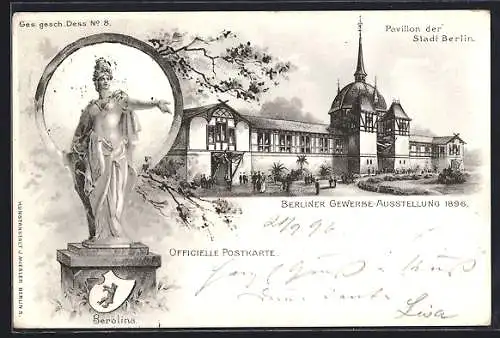 Ges. gesch. Dess. No. 8.
Pavillon der
Stadt Berlin.
BERLINER GEWERBE-AUSSTELLUNG 1896.
OFFICIELLE POSTKARTE.
Gruß
Lisa
Berolina.
KUNSTANSTALT J. MIESLER, BERLIN S.